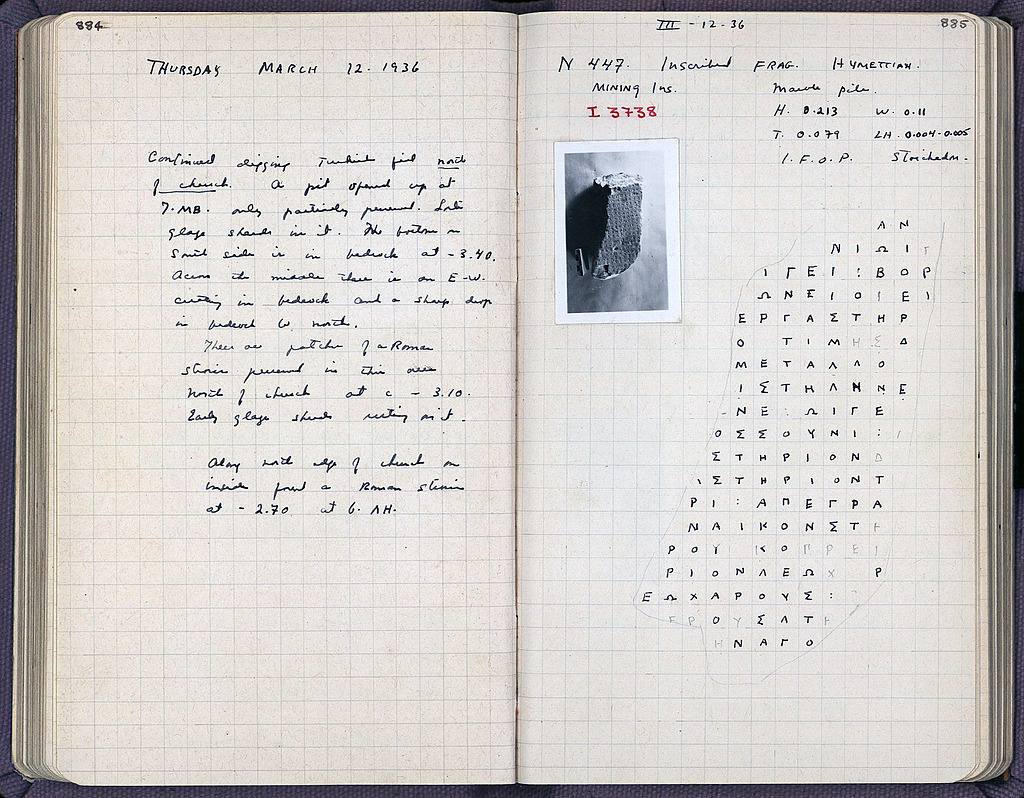 884
THURSDAY MARCH 12. 1936
Continued digging Turkish fill north
of church. A pit opened up at
7. MB. only partially preserved. Late
glaze sherds in it. The bottom on
South side is in bedrock at -3.40.
Across the middle there is an E-W.
cutting in bedrock and a sharp drop
in bedrock to north.
There are patches of a Roman
strosis preserved in this area
North of church at c - 3.10.
Early glaze sherds resting on it.
Along north edge of church on
inside found a Roman strosis
at - 2.70 at 6. ΛH.
III - 12 - 36
885
N 447. Inscribed FRAG. HYMETTIAN.
MINING Ins. Marble
I 3738 H. 0.213 W. 0.11
T. 0.079 LH. 0.004-0.005
1. F. O. P. Stoichedon.
Α Ν
Ν Ι Ω Ι Τ
Ι Γ Ε Ι : Β Ο Ρ
Ω Ν Ε Ι Ο Ι Ε Ι
Ε Ρ Γ Α Σ Τ Η Ρ
Ο Τ Ι Μ Η Σ Δ
Μ Ε Τ Α Λ Λ Ο
Ι Σ Τ Η Λ Η Ν Ε
Ν Ε : Ω Ι Γ Ε
Ο Σ Σ Ο Υ Ν Ι :
Σ Τ Η Ρ Ι Ο Ν Δ
Ι Σ Τ Η Ρ Ι Ο Ν Τ
Ρ Ι : Α Π Ε Γ Ρ Α
Ν Α Ι Κ Ο Ν Σ Τ Η
Ρ Ο Υ Κ Ο Π Ρ Ε Ι
Ρ Ι Ο Ν Λ Ε Ω Χ Ρ
Ε Ω Χ Α Ρ Ο Υ Σ :
Ε Ρ Ο Υ Σ Λ Τ Η
Η Ν Α Γ Ο